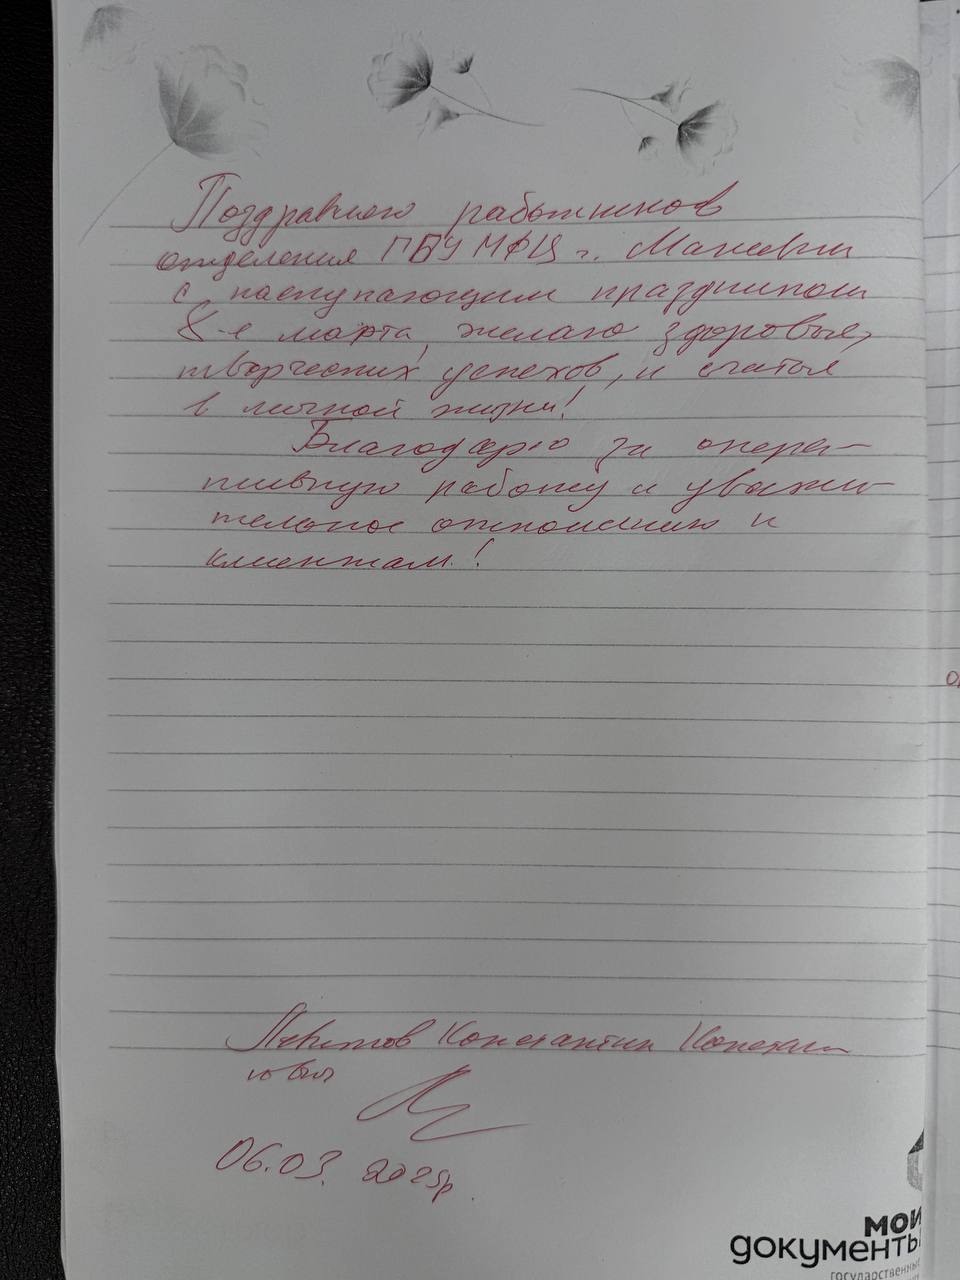 Поздравляю работников
отделения ГБУ МФЦ г. Макеевки
с наступающим праздником
8-е марта, желаю здоровья,
творческих успехов, и счастья
в личной жизни!
Благодарю за опера-
тивную работу и уважи-
тельное отношению к
клиентам!
Константин Констан
тинович
06.03. 2025р.
МОИ
ДОКУМЕНТЫ
государственные